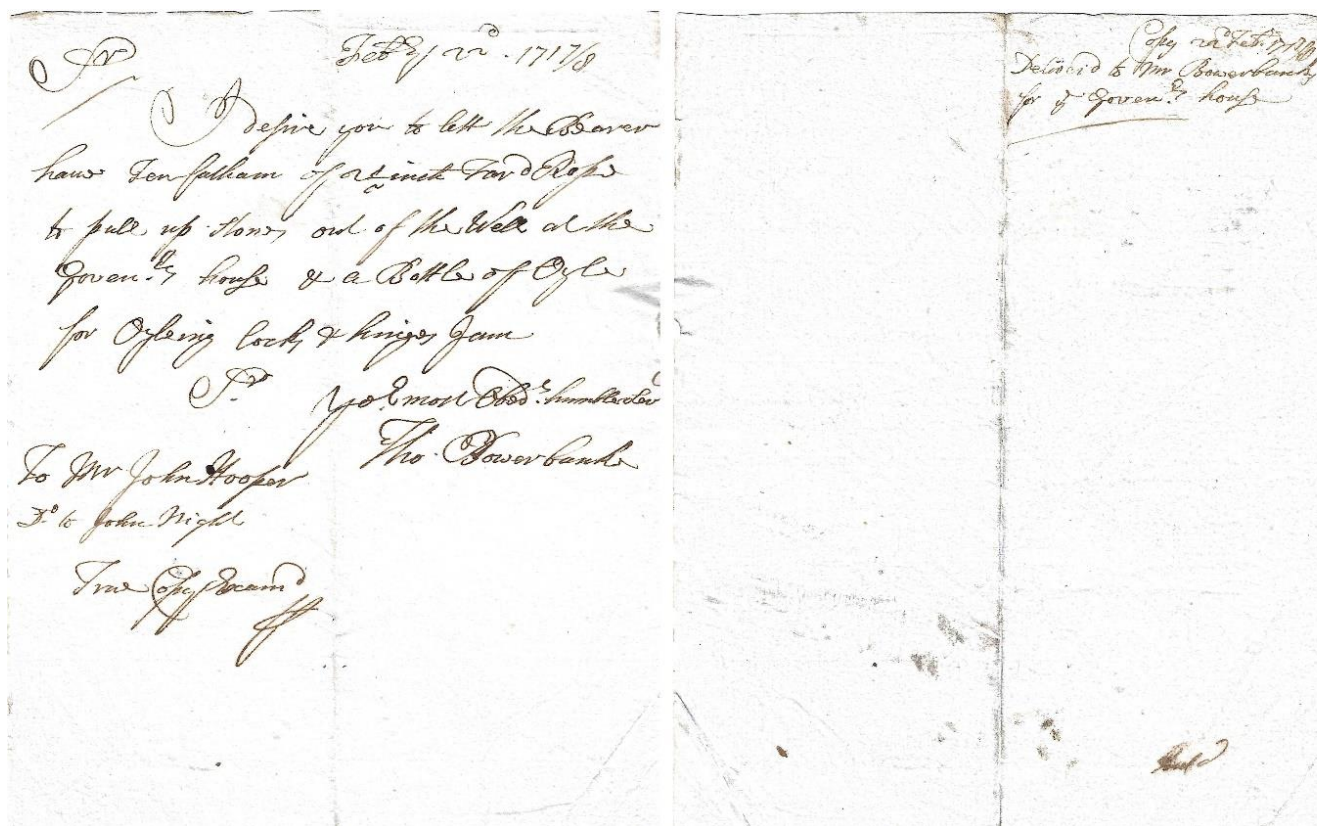 Sr Febry 22d. 1717/8
I desire you to lett the Bearer
have Ten fatham of 2 inch Tard Rope
to pull up stones out of the Well at the
Govenrs house & a Bottle of Oyle
for Oyleing locks & hinges I am
Sr yor most Obedt humble Ser
Tho. Bowerbank
To Mr John Hooper
Do to John Night
True Copy Examd
Copy 22d Febr 1717/8
Deliverd to Mr Bowerbank
for ye Govenrs house